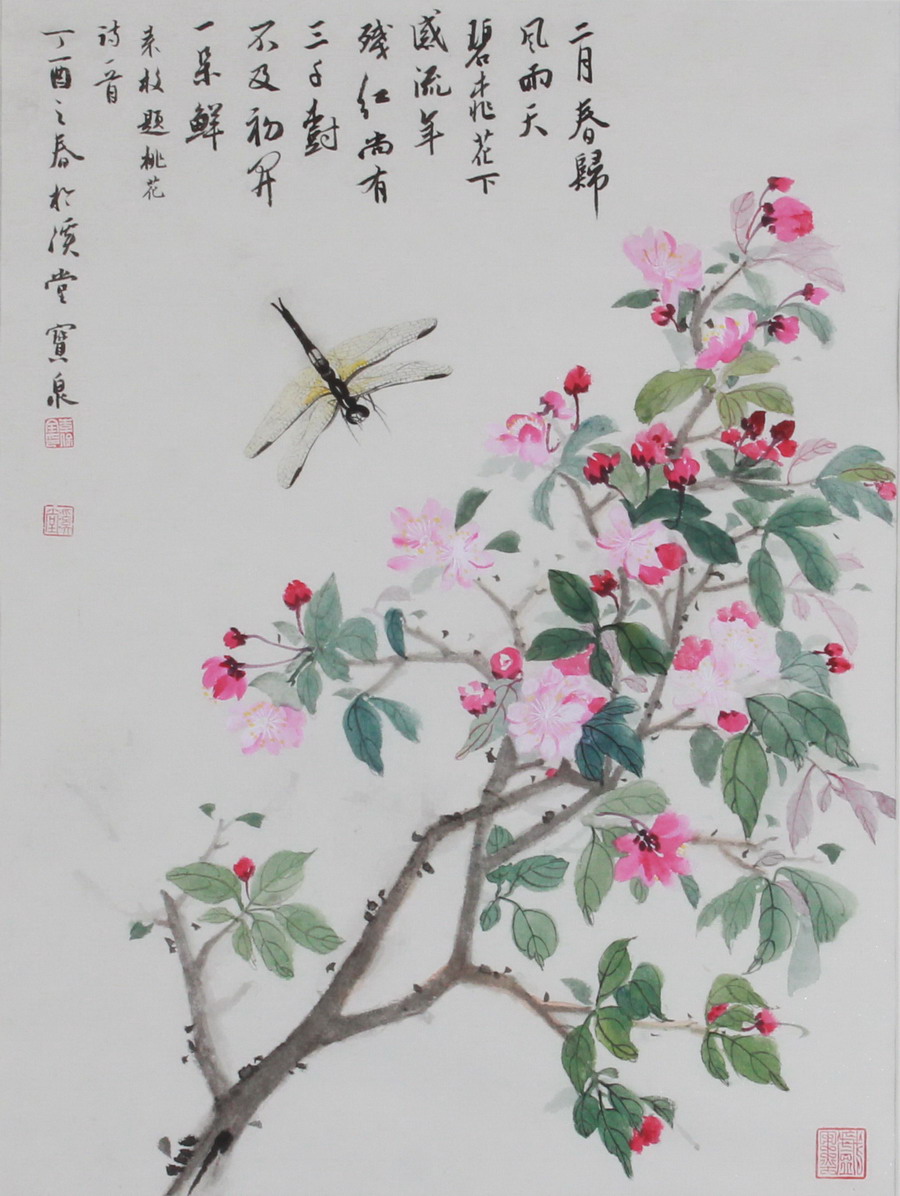 二月春歸
風雨天
碧桃花下
感流年
殘紅尚有
三千樹
不及初開
一朵鮮
袁枚題桃花
詩一首
丁酉之春於溪堂寶泉